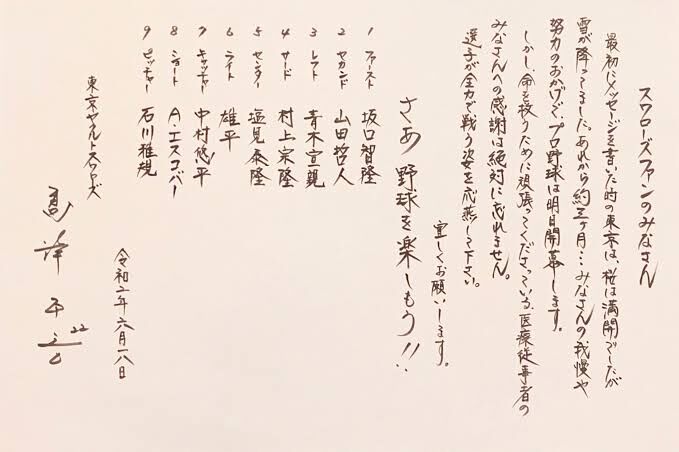 スワローズファンのみなさん
最初にメッセージを書いた時の東京は、桜は満開でしたが
雪が降ってました。あれから約三ヶ月…みなさんの我慢や
努力のおかげで、プロ野球は明日開幕します。
しかし、命を救うために頑張ってくださっている、医療従事者の
みなさんへの感謝は絶対に忘れません。
選手が全力で戦う姿を応燕して下さい。
宜しくお願いします。
さあ 野球を楽しもう!!
1 ファースト 坂口智隆
2 セカンド 山田哲人
3 レフト 青木宣親
4 サード 村上宗隆
5 センター 塩見泰隆
6 ライト 雄平
7 キャッチャー 中村悠平
8 ショート A.エスコバー
9 ピッチャー 石川雅規
令和二年六月一八日
東京ヤクルトスワローズ
高津 臣吾 22